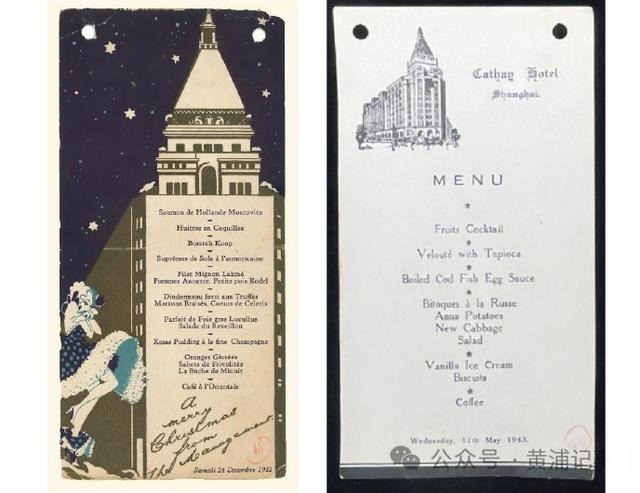 Saumon de Hollande Moscovite
Huitres en Coquilles
Bortsch Koop
Suprêmes de Sole à l'armoricaine
Filet Mignon Lakmé
Pommes Annette. Petits pois Rodel
Dindonneau farci aux Truffes
Marrons Braisés. Coeurs de Celeris
Parfait de Foie gras Lucullus
Salade du Reveillon
Xmas Pudding à la fine Champagne
Oranges Givrées
Sabots de Frivolités
La Bûche de Minuit
Café à l'Orientale
A
merry
Christmas
from
The Management.
Samedi 24 Decembre 1932
Cathay Hotel
Shanghai.
MENU
Fruits Cocktail
Velouté with Tapioca
Boiled Cod Fish Egg Sauce
Bitoques à la Russe
Anna Potatoes
New Cabbage
Salad
Vanilla Ice Cream
Biscuits
Coffee
Wednesday, 12th May 1943.
公众号 · 黄浦记